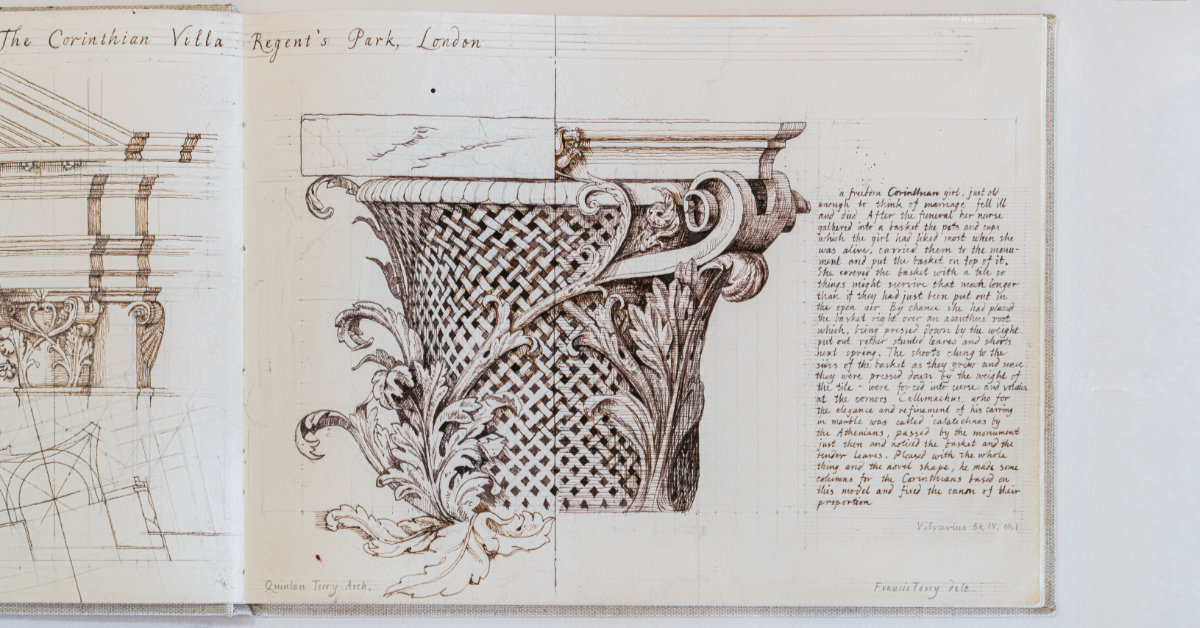 The Corinthian Villa Regent's Park, London
a freeborn Corinthian girl, just old
enough to think of marriage fell ill
and died After the funeral her nurse
gathered into a basket the pots and cups
which the girl had liked most when she
was alive, carried them to the monu-
ment and put the basket on top of it.
She covered the basket with a tile so
things might survive that much longer
than if they had just been put out in
the open air By chance she had placed
the basket right over an acanthus root
which, being pressed down by the weight
put out rather stunted leaves and shoots
next spring. The shoots clung to the
sides of the basket as they grew and since
they were pressed down by the weight of
the tile - were forced into curves and volutes
at the corners Callimachus, who for
the elegance and refinement of his carving
in marble was called catatechnos by
the Athenians, passed by the monument
just then and noticed the basket and the
tender leaves. Pleased with the whole
thing and the novel shape, he made some
columns for the Corinthians based on
this model and fixed the canon of their
proportion
Vitruvius Bk IV, ch I
Quinlan Terry Arch.
Francis Terry delt.